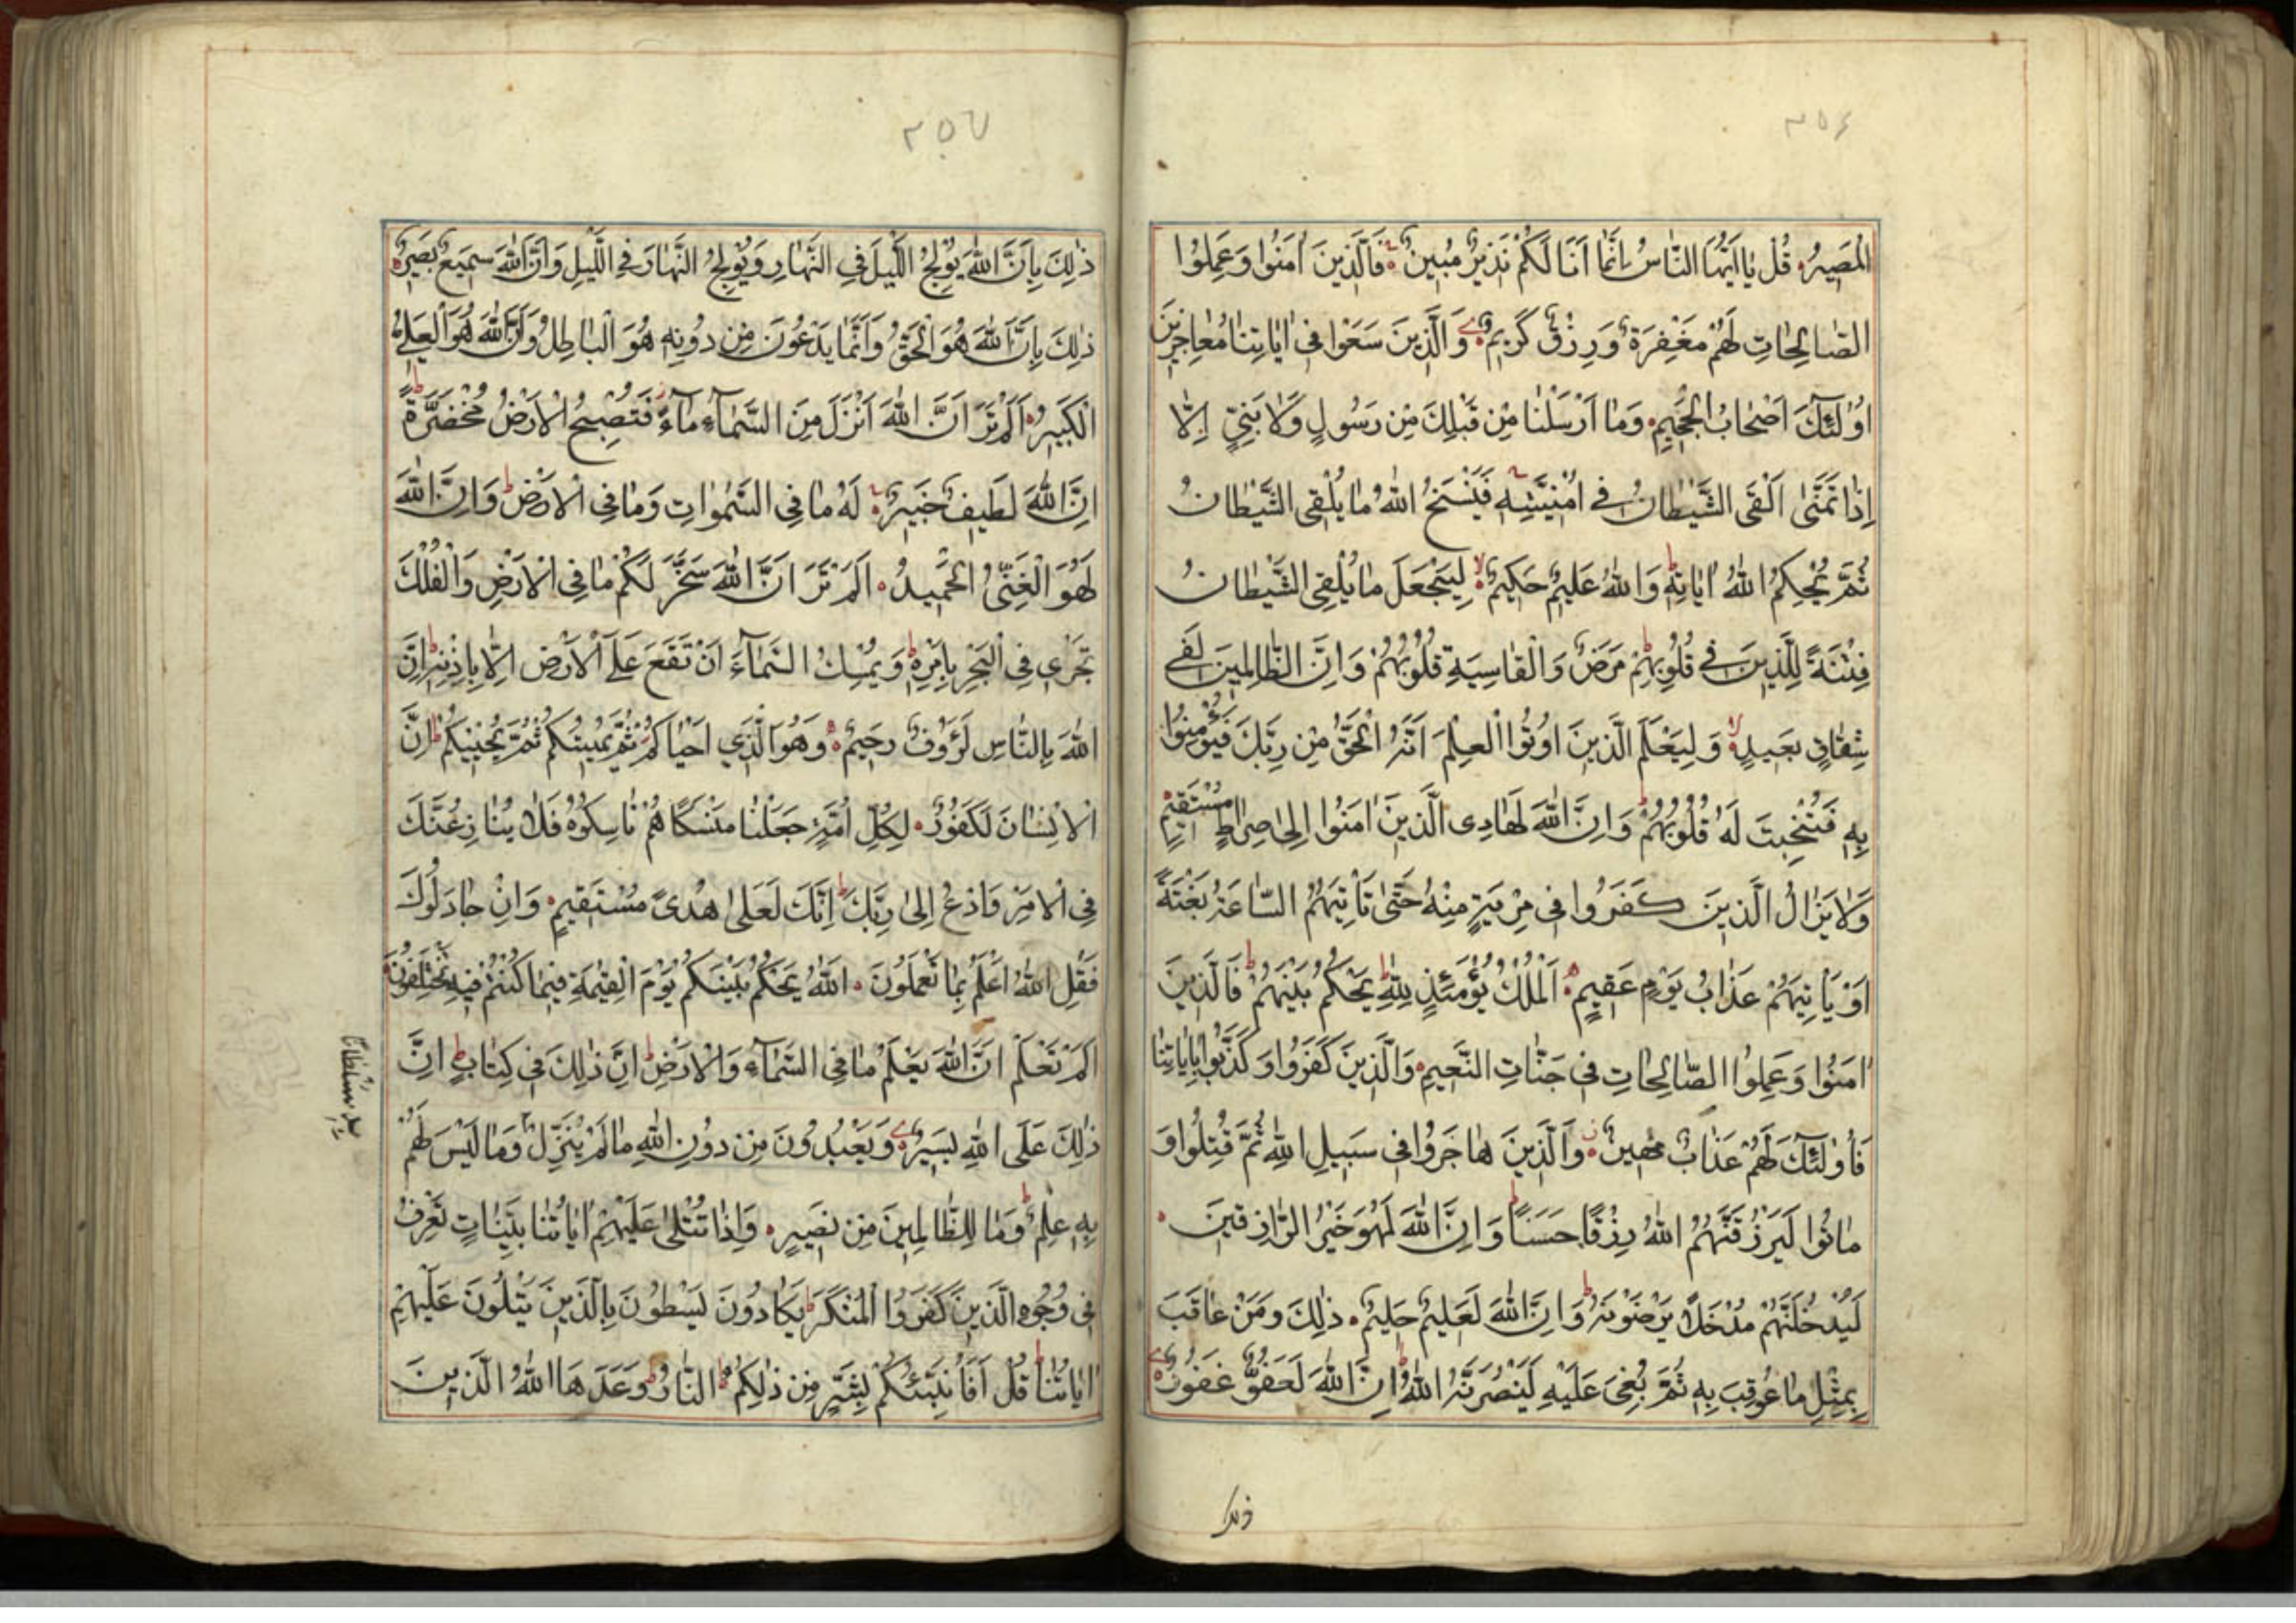 ٣٥٦
الْمَصِيرُ قُلْ يَا اَيُّهَا النَّاسُ اِنَّمَا اَنَا لَكُمْ نَذِيرٌ مُبِينٌ فَالَّذِينَ اٰمَنُوا وَعَمِلُوا
الصَّالِحَاتِ لَهُمْ مَغْفِرَةٌ وَرِزْقٌ كَرِيمٌ وَالَّذِينَ سَعَوْا فِى اٰيَاتِنَا مُعَاجِزِينَ
اُولٰئِكَ اَصْحَابُ الْجَحِيمِ وَمَا اَرْسَلْنَا مِنْ قَبْلِكَ مِنْ رَسُولٍ وَلَا نَبِيٍّ اِلَّا
اِذَا تَمَنّٰى اَلْقَى الشَّيْطَانُ فِى اُمْنِيَّتِهِ فَيَنْسَخُ اللّٰهُ مَا يُلْقِى الشَّيْطَانُ
ثُمَّ يُحْكِمُ اللّٰهُ اٰيَاتِهِ وَاللّٰهُ عَلِيمٌ حَكِيمٌ لِيَجْعَلَ مَا يُلْقِى الشَّيْطَانُ
فِتْنَةً لِلَّذِينَ فِى قُلُوبِهِمْ مَرَضٌ وَالْقَاسِيَةِ قُلُوبُهُمْ وَاِنَّ الظَّالِمِينَ لَفِى
شِقَاقٍ بَعِيدٍ وَلِيَعْلَمَ الَّذِينَ اُوتُوا الْعِلْمَ اَنَّهُ الْحَقُّ مِنْ رَبِّكَ فَيُؤْمِنُوا
بِهِ فَتُخْبِتَ لَهُ قُلُوبُهُمْ وَاِنَّ اللّٰهَ لَهَادِى الَّذِينَ اٰمَنُوا اِلٰى صِرَاطٍ مُسْتَقِيمٍ
وَلَا يَزَالُ الَّذِينَ كَفَرُوا فِى مِرْيَةٍ مِنْهُ حَتّٰى تَأْتِيَهُمُ السَّاعَةُ بَغْتَةً
اَوْ يَأْتِيَهُمْ عَذَابُ يَوْمٍ عَقِيمٍ اَلْمُلْكُ يَوْمَئِذٍ لِلّٰهِ يَحْكُمُ بَيْنَهُمْ فَالَّذِينَ
اٰمَنُوا وَعَمِلُوا الصَّالِحَاتِ فِى جَنَّاتِ النَّعِيمِ وَالَّذِينَ كَفَرُوا وَكَذَّبُوا بِاٰيَاتِنَا
فَاُولٰئِكَ لَهُمْ عَذَابٌ مُهِينٌ وَالَّذِينَ هَاجَرُوا فِى سَبِيلِ اللّٰهِ ثُمَّ قُتِلُوا اَوْ
مَاتُوا لَيَرْزُقَنَّهُمُ اللّٰهُ رِزْقًا حَسَنًا وَاِنَّ اللّٰهَ لَهُوَ خَيْرُ الرَّازِقِينَ
لَيُدْخِلَنَّهُمْ مُدْخَلًا يَرْضَوْنَهُ وَاِنَّ اللّٰهَ لَعَلِيمٌ حَلِيمٌ ذٰلِكَ وَمَنْ عَاقَبَ
بِمِثْلِ مَا عُوقِبَ بِهِ ثُمَّ بُغِىَ عَلَيْهِ لَيَنْصُرَنَّهُ اللّٰهُ اِنَّ اللّٰهَ لَعَفُوٌّ غَفُورٌ
ذلك
٣٥٧
ذٰلِكَ بِاَنَّ اللّٰهَ يُولِجُ اللَّيْلَ فِى النَّهَارِ وَيُولِجُ النَّهَارَ فِى اللَّيْلِ وَاَنَّ اللّٰهَ سَمِيعٌ بَصِيرٌ
ذٰلِكَ بِاَنَّ اللّٰهَ هُوَ الْحَقُّ وَاَنَّمَا يَدْعُونَ مِنْ دُونِهِ هُوَ الْبَاطِلُ وَاَنَّ اللّٰهَ هُوَ الْعَلِىُّ
الْكَبِيرُ اَلَمْ تَرَ اَنَّ اللّٰهَ اَنْزَلَ مِنَ السَّمَآءِ مَآءً فَتُصْبِحُ الْاَرْضُ مُخْضَرَّةً
اِنَّ اللّٰهَ لَطِيفٌ خَبِيرٌ لَهُ مَا فِى السَّمٰوَاتِ وَمَا فِى الْاَرْضِ وَاِنَّ اللّٰهَ
لَهُوَ الْغَنِىُّ الْحَمِيدُ اَلَمْ تَرَ اَنَّ اللّٰهَ سَخَّرَ لَكُمْ مَا فِى الْاَرْضِ وَالْفُلْكَ
تَجْرِى فِى الْبَحْرِ بِاَمْرِهِ وَيُمْسِكُ السَّمَآءَ اَنْ تَقَعَ عَلَى الْاَرْضِ اِلَّا بِاِذْنِهِ اِنَّ
اللّٰهَ بِالنَّاسِ لَرَؤُفٌ رَحِيمٌ وَهُوَ الَّذِى اَحْيَاكُمْ ثُمَّ يُمِيتُكُمْ ثُمَّ يُحْيِيكُمْ اِنَّ
الْاِنْسَانَ لَكَفُورٌ لِكُلِّ اُمَّةٍ جَعَلْنَا مَنْسَكًا هُمْ نَاسِكُوهُ فَلَا يُنَازِعُنَّكَ
فِى الْاَمْرِ وَادْعُ اِلٰى رَبِّكَ اِنَّكَ لَعَلٰى هُدًى مُسْتَقِيمٍ وَاِنْ جَادَلُوكَ
فَقُلِ اللّٰهُ اَعْلَمُ بِمَا تَعْمَلُونَ اَللّٰهُ يَحْكُمُ بَيْنَكُمْ يَوْمَ الْقِيٰمَةِ فِيمَا كُنْتُمْ فِيهِ تَخْتَلِفُونَ
اَلَمْ تَعْلَمْ اَنَّ اللّٰهَ يَعْلَمُ مَا فِى السَّمَآءِ وَالْاَرْضِ اِنَّ ذٰلِكَ فِى كِتَابٍ اِنَّ
ذٰلِكَ عَلَى اللّٰهِ يَسِيرٌ وَيَعْبُدُونَ مِنْ دُونِ اللّٰهِ مَا لَمْ يُنَزِّلْ وَمَا لَيْسَ لَهُمْ
بِهِ سُلْطَانًا
بِهِ عِلْمٌ وَمَا لِلظَّالِمِينَ مِنْ نَصِيرٍ وَاِذَا تُتْلٰى عَلَيْهِمْ اٰيَاتُنَا بَيِّنَاتٍ تَعْرِفُ
فِى وُجُوهِ الَّذِينَ كَفَرُوا الْمُنْكَرَ يَكَادُونَ يَسْطُونَ بِالَّذِينَ يَتْلُونَ عَلَيْهِمْ
اٰيَاتِنَا قُلْ اَفَاُنَبِّئُكُمْ بِشَرٍّ مِنْ ذٰلِكُمُ النَّارُ وَعَدَهَا اللّٰهُ الَّذِينَ